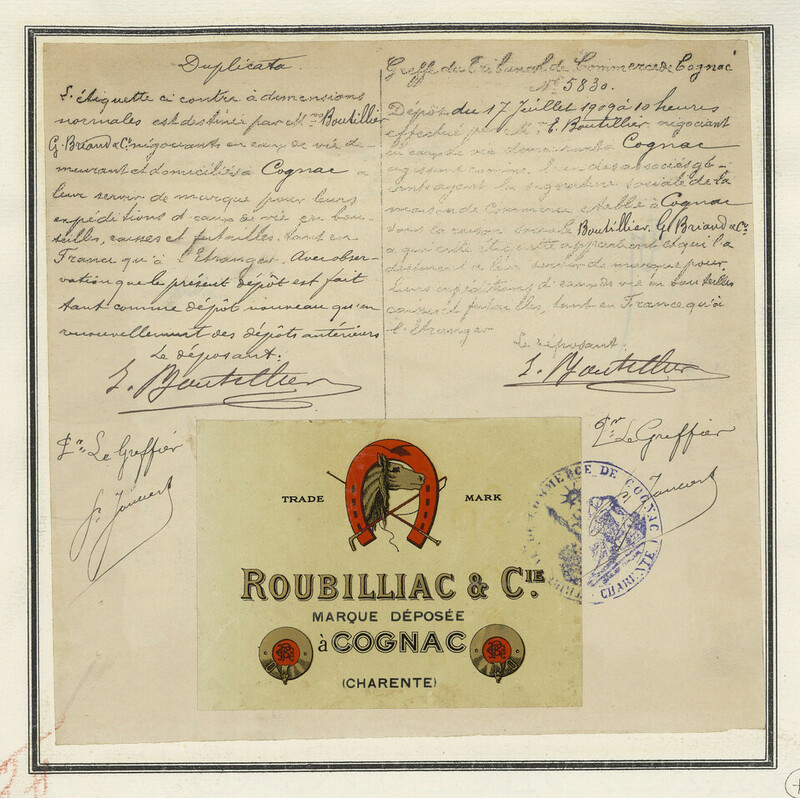 Duplicata
L'étiquette ci contre à dimensions
normales est destinée par M. Boutillier
G. Briand & Cie négociants en eaux de vie de-
meurant et domiciliés à Cognac à
leur servir de marque pour leurs
expéditions d'eaux de vie en bou-
teilles, caisses et futailles, tant en
France qu'à l'Etranger. Avec obser-
vation que le présent dépôt est fait
tant comme dépôt nouveau qu'en
renouvellement des dépôts antérieurs
Le déposant:
E. Boutillier
Pr. Le Greffier
Greffe du Tribunal de Commerce de Cognac
No. 5830.
Dépôt du 17 Juillet 1909 à 10 heures
effectué par M. E. Boutillier, négociant
en eaux de vie demeurant à Cognac
agissant comme l'un des associés
ayant la signature sociale de la
maison de Commerce établie à Cognac
sous la raison sociale Boutillier, G. Briand & Cie
à qui cette étiquette appartient et qui l'a
destinent à leur servir de marque pour
leurs expéditions d'eaux de vie en bouteilles
caisses et futailles, tant en France qu'à
l'Etranger
Le déposant:
E. Boutillier
Pr. Le Greffier
TRADE MARK
ROUBILLIAC & CIE.
MARQUE DÉPOSÉE
à COGNAC
(CHARENTE)
COMMERCE DE COGNAC
CHARENTE